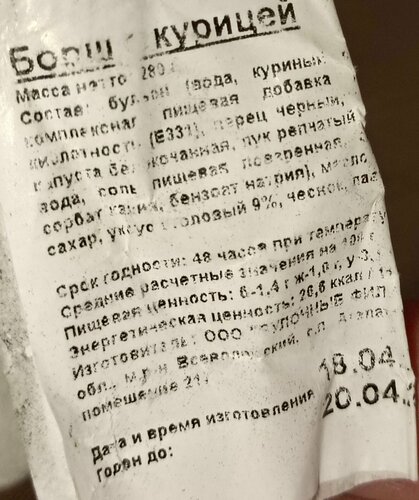 Борщ с курицей
Масса нетто: 280
Состав: бульон (вода, куриный
комплексная пищевая добавка
кислотности (Е331), перец черный,
капуста белокочанная, лук репчатый
вода, соль пищевая поваренная,
сорбат калия, бензоат натрия), масло
сахар, уксус столовый 9%, чеснок,
Срок годности: 48 часов при температу
Средние расчетные значения на 100
Пищевая ценность: б-1,4 г ж-1,0 г, у-3,
Энергетическая ценность: 26,6 ккал /
Изготовитель: ООО "БУЛОЧНЫЕ ФИЛ
обл., м.р-н Всеволожский, с.п.
помещение 21
Дата и время изготовления 18.04.
Годен до: 20.04.